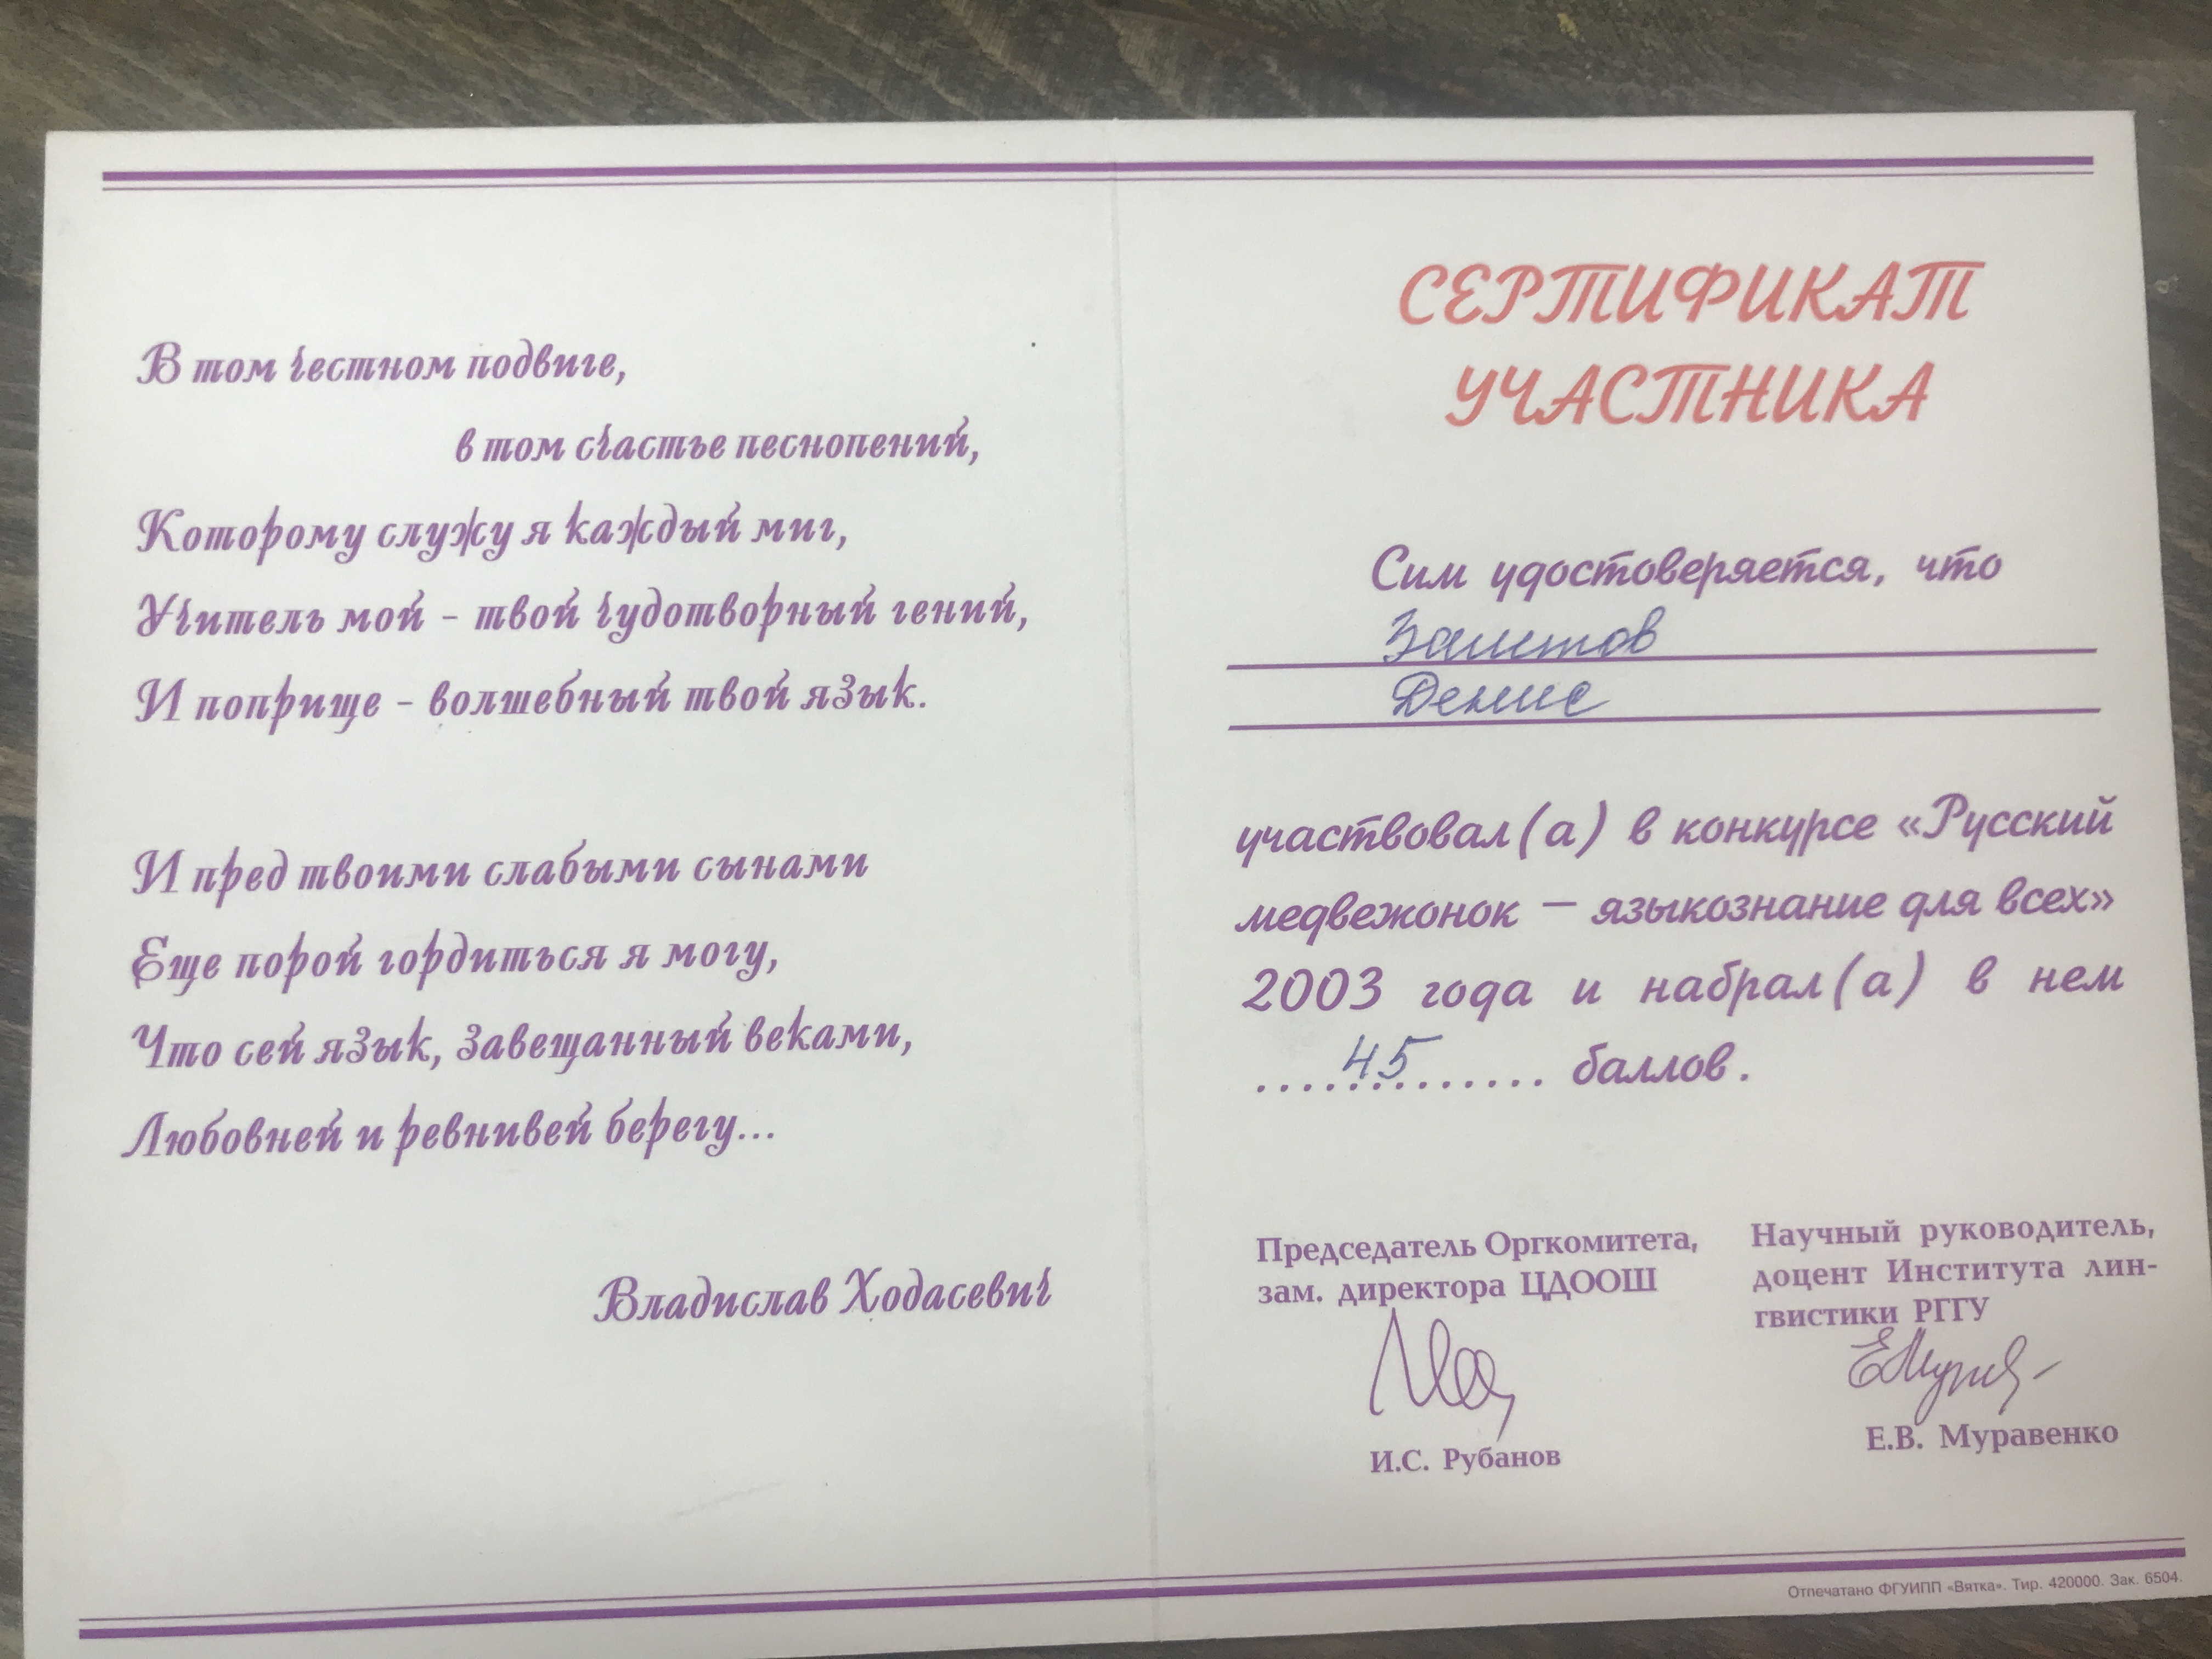 В том честном подвиге,
в том счастье песнопений,
Которому служу я каждый миг,
Учитель мой - твой чудотворный гений,
И поприще - волшебный твой язык.
И пред твоими слабыми сынами
Еще порой гордиться я могу,
Что сей язык, завещанный веками,
Любовней и ревнивей берегу...
Владислав Ходасевич
СЕРТИФИКАТ
УЧАСТНИКА
Сим удостоверяется, что
Денис
участвовал(а) в конкурсе «Русский
медвежонок — языкознание для всех»
2003 года и набрал(а) в нем
....45.... баллов.
Председатель Оргкомитета,
зам. директора ЦДООШ
И.С. Рубанов
Научный руководитель,
доцент Института лин-
гвистики РГГУ
Е.В. Муравенко
Отпечатано ФГУИПП «Вятка». Тир. 420000. Зак. 6504.